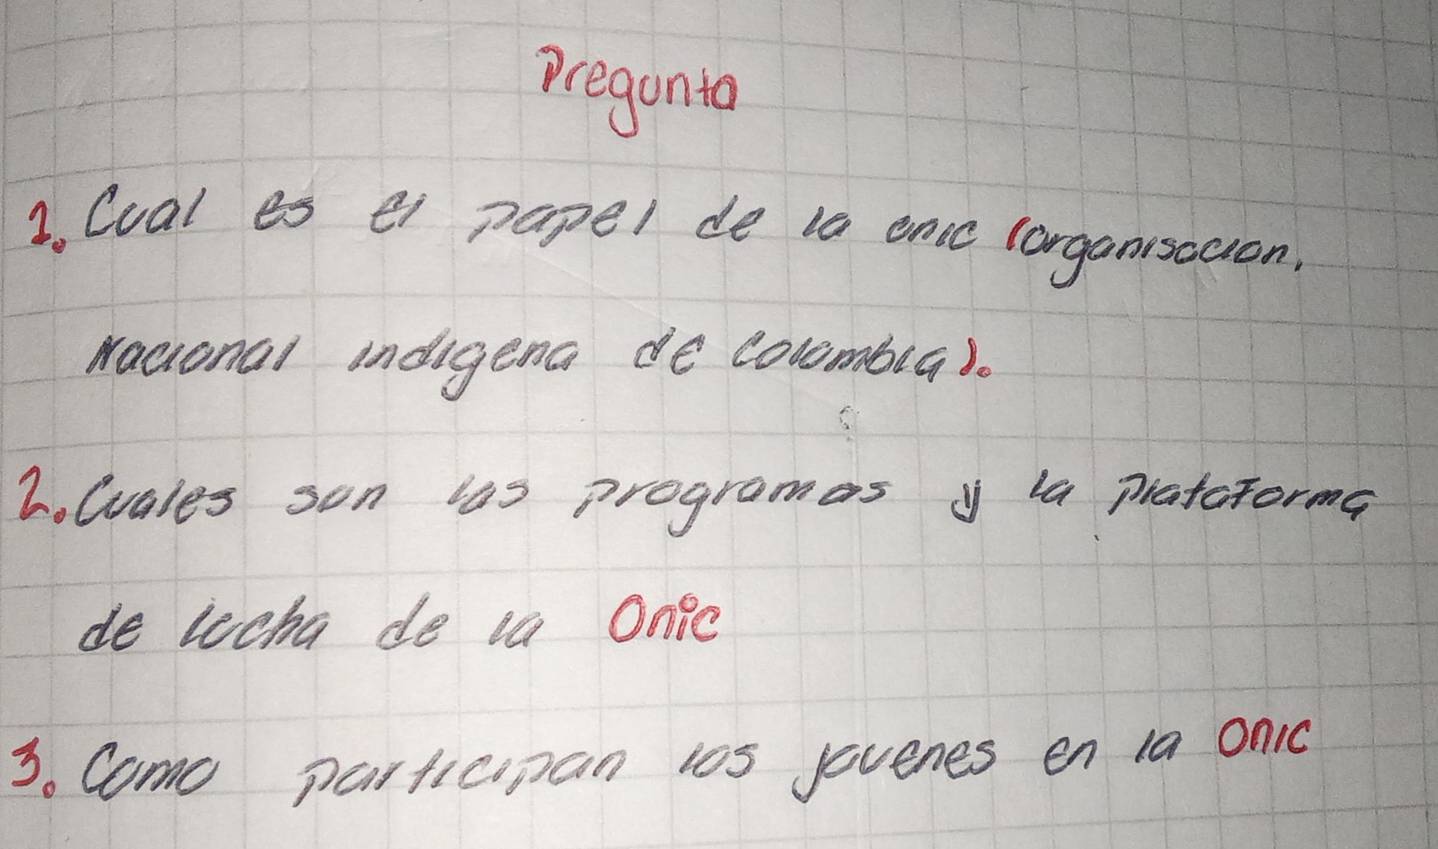 Pregunta
1. Cual es el papel de la onic (organisacion.
Nacional indigena de Colombia).
2. Cuales son las programas y la plataforma
de lucha de la Onic
3. Como participan los jovenes en la onic